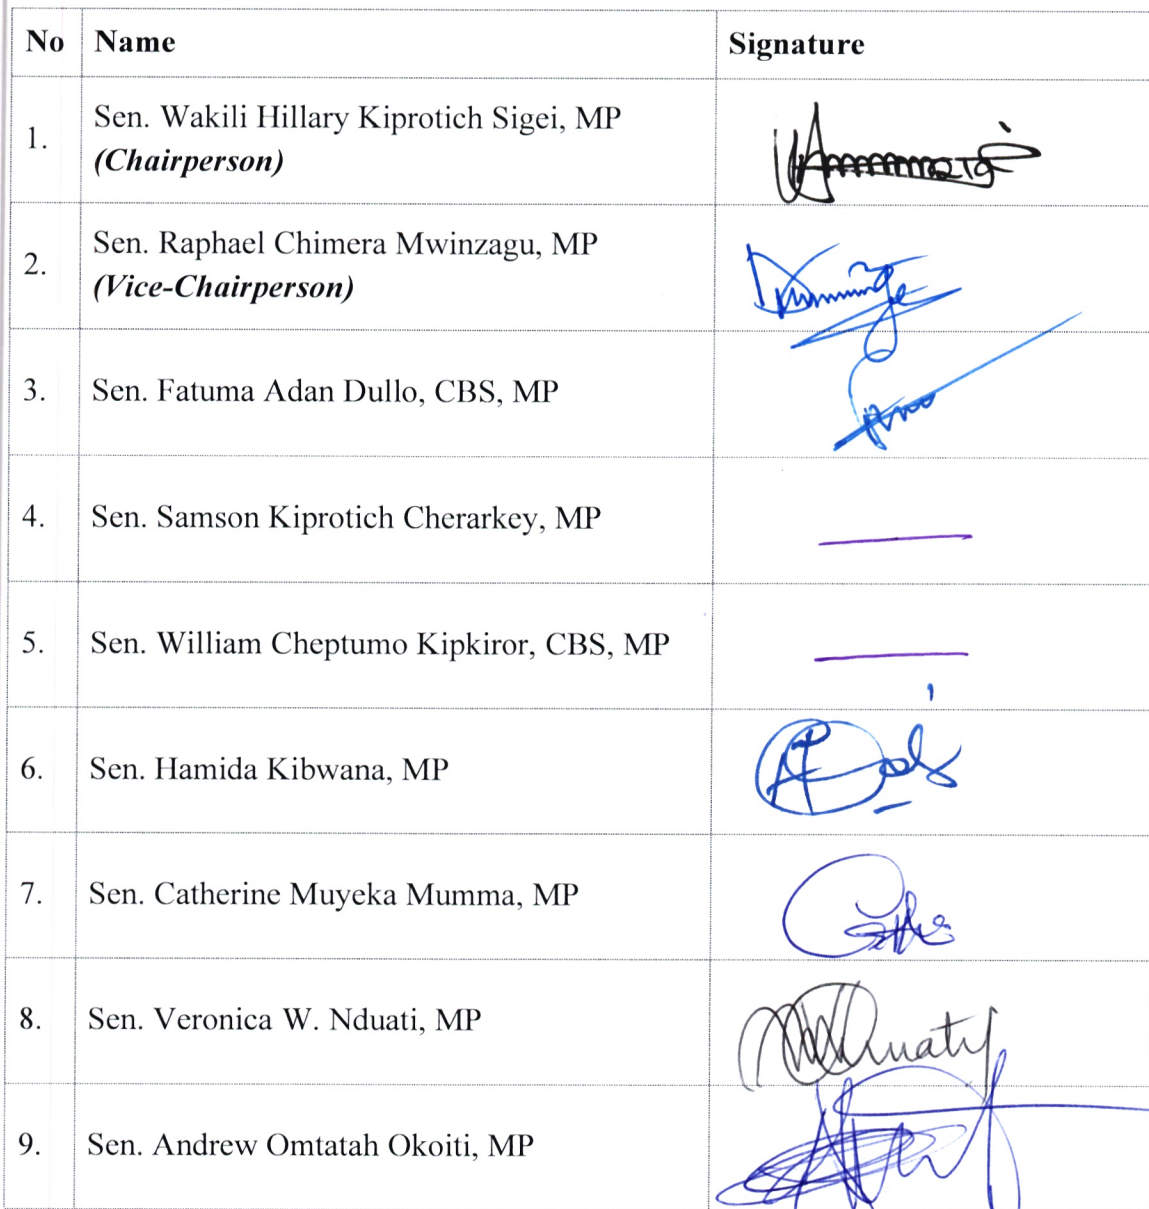 No Name Signature
1. Sen. Wakili Hillary Kiprotich Sigei, MP
(Chairperson)
2. Sen. Raphael Chimera Mwinzagu, MP
(Vice-Chairperson)
3. Sen. Fatuma Adan Dullo, CBS, MP
4. Sen. Samson Kiprotich Cherarkey, MP
5. Sen. William Cheptumo Kipkiror, CBS, MP
6. Sen. Hamida Kibwana, MP
7. Sen. Catherine Muyeka Mumma, MP
8. Sen. Veronica W. Nduati, MP
9. Sen. Andrew Omtatah Okoiti, MP